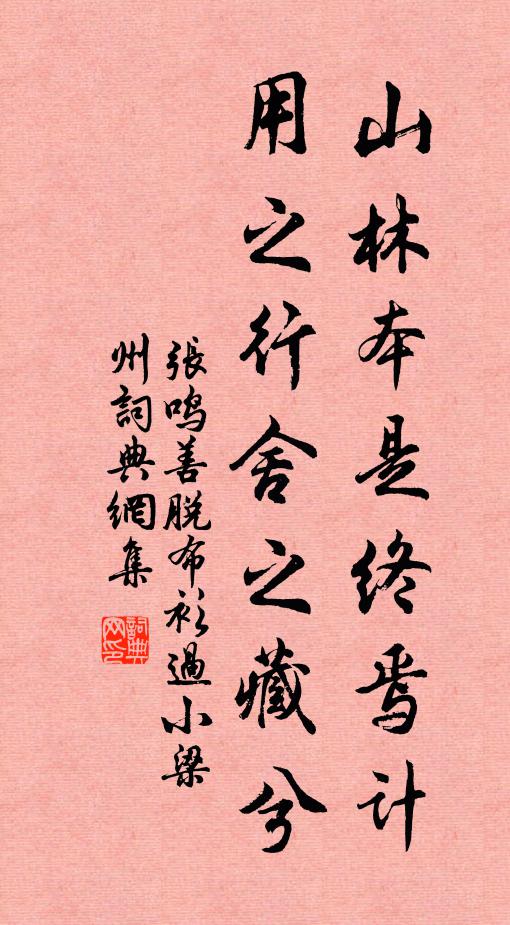 山林本是终焉计
用之行舍之藏兮
張鸣善脱布衫過小梁
州詞典網集
詞典网印